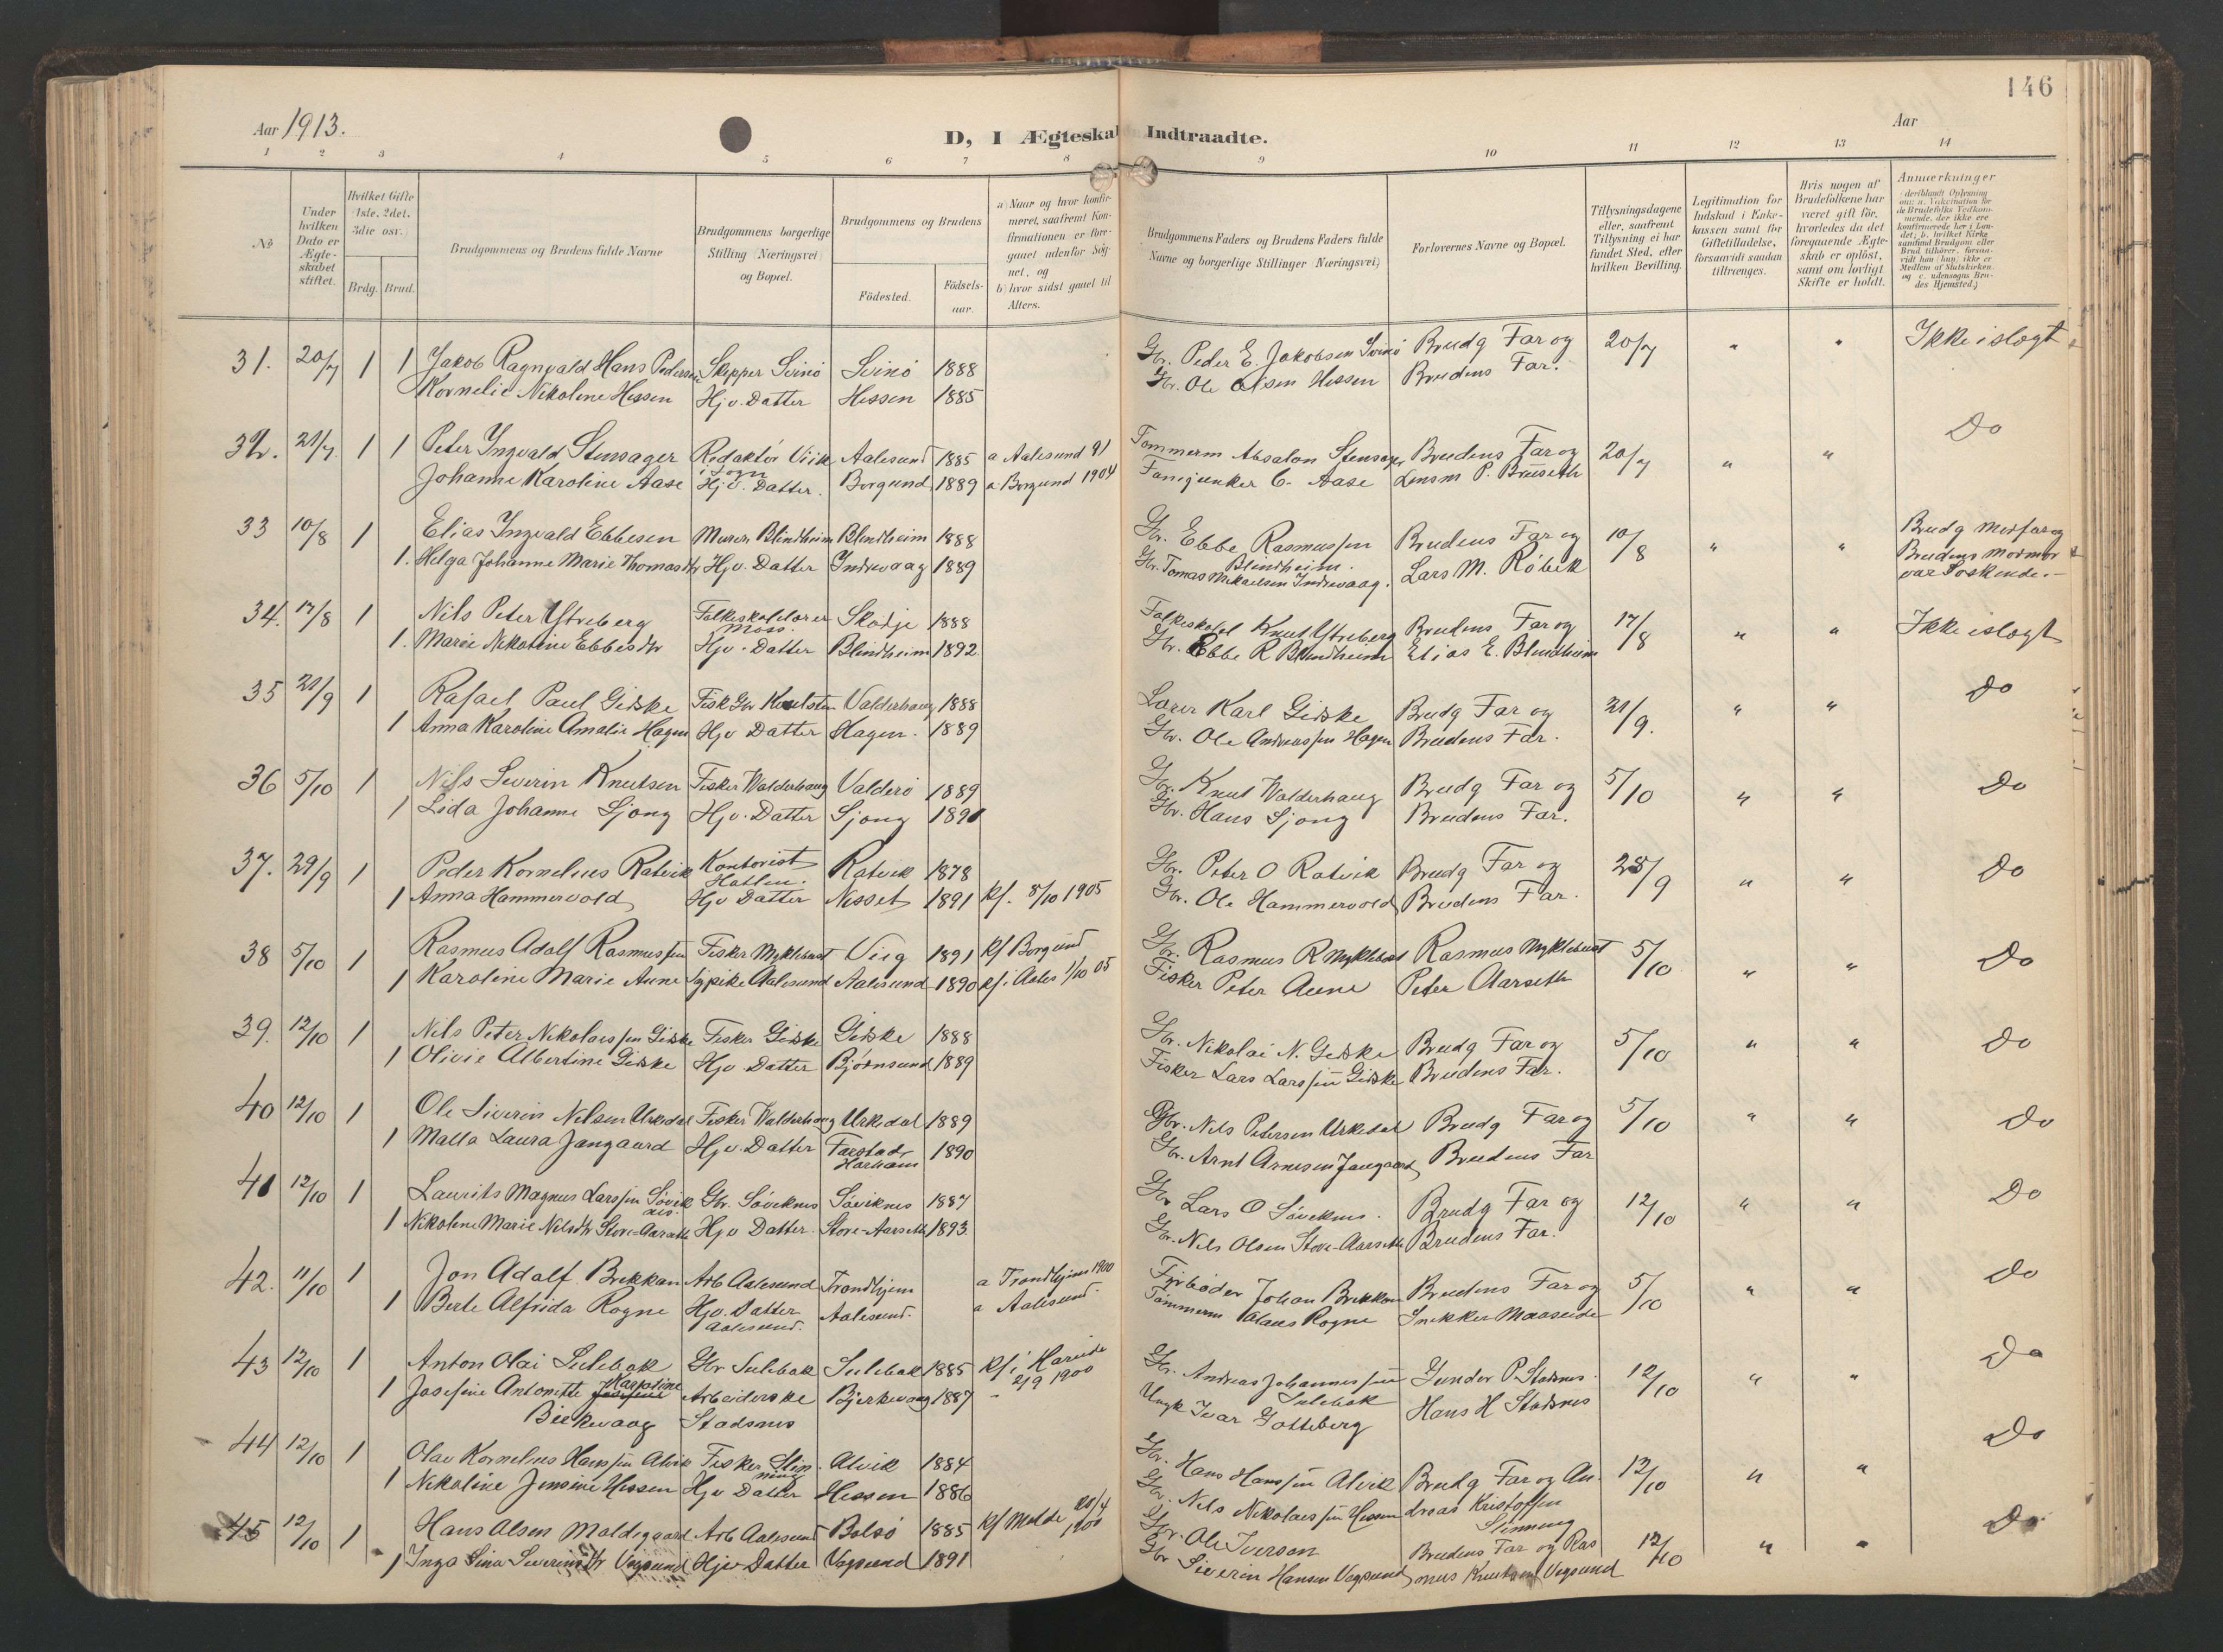 146
Aar 1913.
Aar
D, I Ægteskab Indtraadte.
1 2 3 4 5 6 7 8 9 10 11 12 13 14
No
Under hvilken Dato er Ægteskabet stiftet.
Hvilket Gifte (1ste, 2det, 3die osv.)
Brdg. Brud.
Brudgommens og Brudens fulde Navne
Brudgommens borgerlige Stilling (Næringsvei) og Bopæl.
Brudgommens og Brudens
Födested.
Födselsaar.
a) Naar og hvor konfirmeret, saafremt Konfirmationen er foregaaet udenfor Sognet, og b) hvor sidst gaaet til Alters.
Brudgommens Faders og Brudens Faders fulde Navne og borgerlige Stillinger (Næringsvei)
Forlovernes Navne og Bopæl.
Tillysningsdagene eller, saafremt Tillysning ei har fundet Sted, efter hvilken Bevilling.
Legitimation for Indskud i Enkekassen samt for Giftetilladelse, forsaavidt saadan tiltrænges.
Hvis nogen af Brudefolkene har været gift før, hvorledes da det foregaaende Ægteskab er oplöst, samt om lovligt Skifte er holdt.
Anmærkninger
31. 20/7 1 1 Jakob Ragnvald Hans Pedersen Skipper Svinö Svinö 1888 Gbr. Peder E. Jakobsen Svinö Brudg Far og 20/7 " " Ikke i slegt
Kornelie Nikoline Hessen Hjv. Datter Hessen 1885 Gbr. Ole Olsen Hessen Brudens Far.
32. 21/7 1 1 Peter Ingvald Stensager Redaktör Viik i Sogn Aalesund 1885 a Aalesund 91 Tømmerm Absalon Stensager Brudens Far og 20/7 " " Do
Johanne Karoline Aase Hjv. Datter. Borgund 1889 a Borgund 1904 Fanejunker C. Aase Lensm P. Bruseth
33 10/8 1 Elias Ingvald Ebbesen Murer Blindheim Blindheim 1888 Gbr. Ebbe Rasmussen Blindheim. Brudens Far og 10/8 " " Brudg Morfar og
1. Helga Johanne Marie Thomasdtr Hjv. Datter Indrevaag 1889 Gbr. Tomas Mikaelsen Indrevaag. Lars M. Röbek Brudens Mormor var Söskende.
34. 17/8 1 Nils Peter Ytreberg Folkeskolelærer Moss. Skodje 1888 Folkeskolel Knut Ytreberg Brudens Far og 17/8 " " Ikke i slegt
1. Marie Nikoline Ebbesdtr Hjv. Datter Blindheim 1892 Gbr. Ebbe R Blindheim Elias E. Blindheim
35 21/9 1 Rafael Paul Gidske Valderhaug 1888 Lærer Karl Gidske Brudg Far og 21/9. " " Do
1 Anna Karoline Amalie Hagen Hjv Datter Hagen. 1889 Gbr. Ole Andreassen Hagen Brudens Far.
36 5/10 1 Nils Severin Knutsen Fisker Valderhaug Valderö 1889 Gbr. Knut Valderhaug Brudg Far og 5/10 " " Do
1 Lida Johanne Gjong Hjv. Datter Gjong 1891 Gbr. Hans Gjong Brudens Far.
37. 29/9 1 Peder Kornelius Ratvik Kontorist Hatlen. Ratvik 1878 Gbr. Peter O Ratvik Brudg Far og 28/9 " " Do
1 Anna Hammervold Hjv Datter Nesset 1891 Kf. 8/10 1905 Gbr. Ole Hammervold Brudens Far.
38 5/10 1 Rasmus Adolf Rasmussen Fisker Myklebust Vigg 1891 Kf Borgund Gbr. Rasmus R Myklebust Rasmus Myklebust 5/10 " " Do
1 Karoline Marie Aune Aalesund Aalesund 1890 Kf i Aales 1/10 05 Fisker Peter Aune Peter Aarseth
39. 12/10 1 Nils Peter Nikolaissen Gidske Fisker Gidske Gidske 1888 Gbr. Nikolai N. Gidske Brudg Far og 5/10 " " Do
1 Olivie Albertine Gidske Hjv. Datter Björnsund 1889 Fisker Lars Larssen Gidske Brudens Far.
40 12/10 1 Ole Siverin Nilsen Urkedal Fisker Valderhaug Urkedal 1889 Gbr. Nils Petersen Urkedal Brudg Far og 5/10 " " Do
1 Malla Laura Jangaard Hjv. Datter Farstad Harham 1890 Gbr. Arnt Arnesen Jangaard Brudens Far
41 12/10 1 Laurits Magnus Larssen Sövik nes. Gbr. Söviknes Söviknes 1887 Gbr Lars O Söviknes. Brudg Far og 12/10 " " Do
1 Nikoline Marie Nilsdtr Store-Aarseth Hjv Datter. Store-Aarseth 1893. Gbr. Nils Olsen Store-Aarseth Brudens Far.
42. 11/10 1 Jon Adolf Brekkan Arb Aalesund Trondhjem a Trondhjem 1900 Fyrböder Johan Brekkan Brudens Far og 5/10 " " Do
1 Berte Alfrida Rogne Hjv. Datter Aalesund. Aalesund. a Aalesund. Tömmerm Claus Rogne Snekker Maaseide
43 12/10 1 Anton Olai Sulebak Gbr Sulebak Sulebak 1885 Kf i Hareide 2/9 1900 Gbr. Andreas Johannessen Sulebak Gunder P. Stadsnes. 12/10 " " Do
1 Josefine Antonette Karoline Bjerkevaag Arbeiderske Stadsnes Bjerkevaag 1887 Ungk Ivar Gotteberg Hans H Stadsnes
44 12/10 1 Olav Kornelius Hanssen Alvik Fisker Slinning Alvik 1884 Gbr. Hans Hanssen Alvik Brudg Far og An- 12/10 " " Do
1 Nikoline Jensine Hessen Hjv Datter Hessen 1886 Gbr. Nils Nikolaissen Hessen dreas Kristoffsen Slinning
45 12/10 1 Hans Olsen Moldegaard Arb Aalesund Bolsö 1885 Kf Molde 1900 Gbr. Ole Iversen Brudens Far og Ras 12/10 " " Do
1 Inga Lina Severinsdtr Vegsund Hjv Datter Vegsund 1891 Gbr Siverin Hansen Vegsund mus Knutsen Vegsund